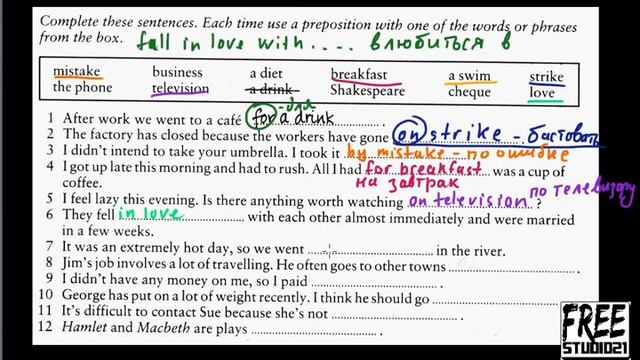 Complete these sentences. Each time use a preposition with one of the words or phrases
from the box. fall in love with .... влюбиться в
mistake business a diet breakfast a swim strike
the phone television a drink Shakespeare cheque love
1 After work we went to a café for a drink - для
2 The factory has closed because the workers have gone on strike - бастовать
3 I didn't intend to take your umbrella. I took it by mistake - по ошибке
4 I got up late this morning and had to rush. All I had for breakfast was a cup of
coffee. на завтрак
5 I feel lazy this evening. Is there anything worth watching on television ? по телевизору
6 They fell in love with each other almost immediately and were married
in a few weeks.
7 It was an extremely hot day, so we went in the river.
8 Jim's job involves a lot of travelling. He often goes to other towns .
9 I didn't have any money on me, so I paid .
10 George has put on a lot of weight recently. I think he should go .
11 It's difficult to contact Sue because she's not .
12 Hamlet and Macbeth are plays .
FREE
STUDIO21